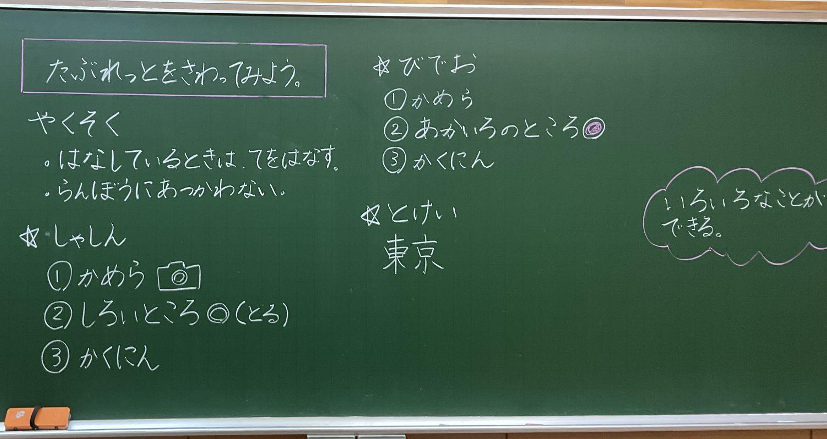 たぶれっとをさわってみよう。
やくそく
・はなしているときは、てをはなす。
・らんぼうにあつかわない。
☆しゃしん
①かめら
②しろいところ◎(とる)
③かくにん
☆びでお
①かめら
②あかいろのところ◎
③かくにん
☆とけい
東京
いろいろなことが
できる。